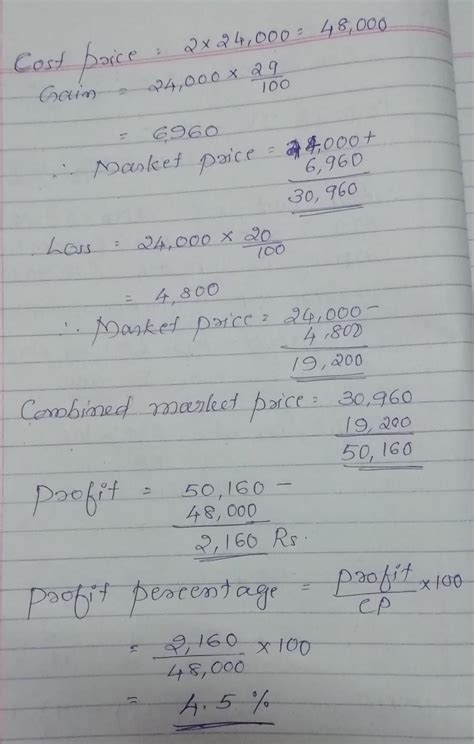 Cost price = 2 × 24,000 = 48,000
Gain = 24,000 × 29/100
= 6,960
∴ Market price = 24,000+
6,960
30,960
Loss = 24,000 × 20/100
= 4,800
∴ Market price = 24,000-
4,800
19,200
Combined market price = 30,960
19,200
50,160
Profit = 50,160-
48,000
2,160 Rs.
Profit percentage = Profit/CP ×100
= 2,160/48,000 ×100
= 4.5%